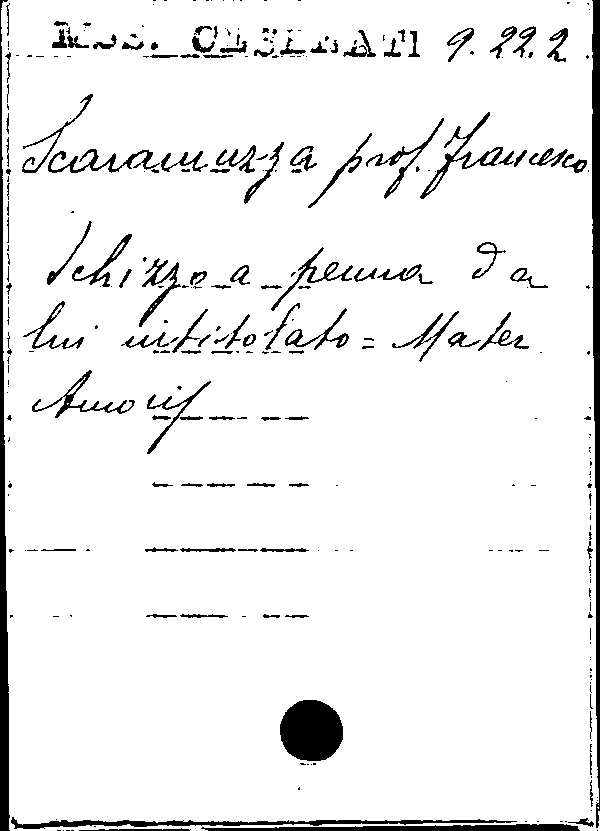 Mss. CESERATI 9.22.2
Scaramuzza prof. Francesco
Schizzo a penna da
lui intitolato = Mater
Amoris